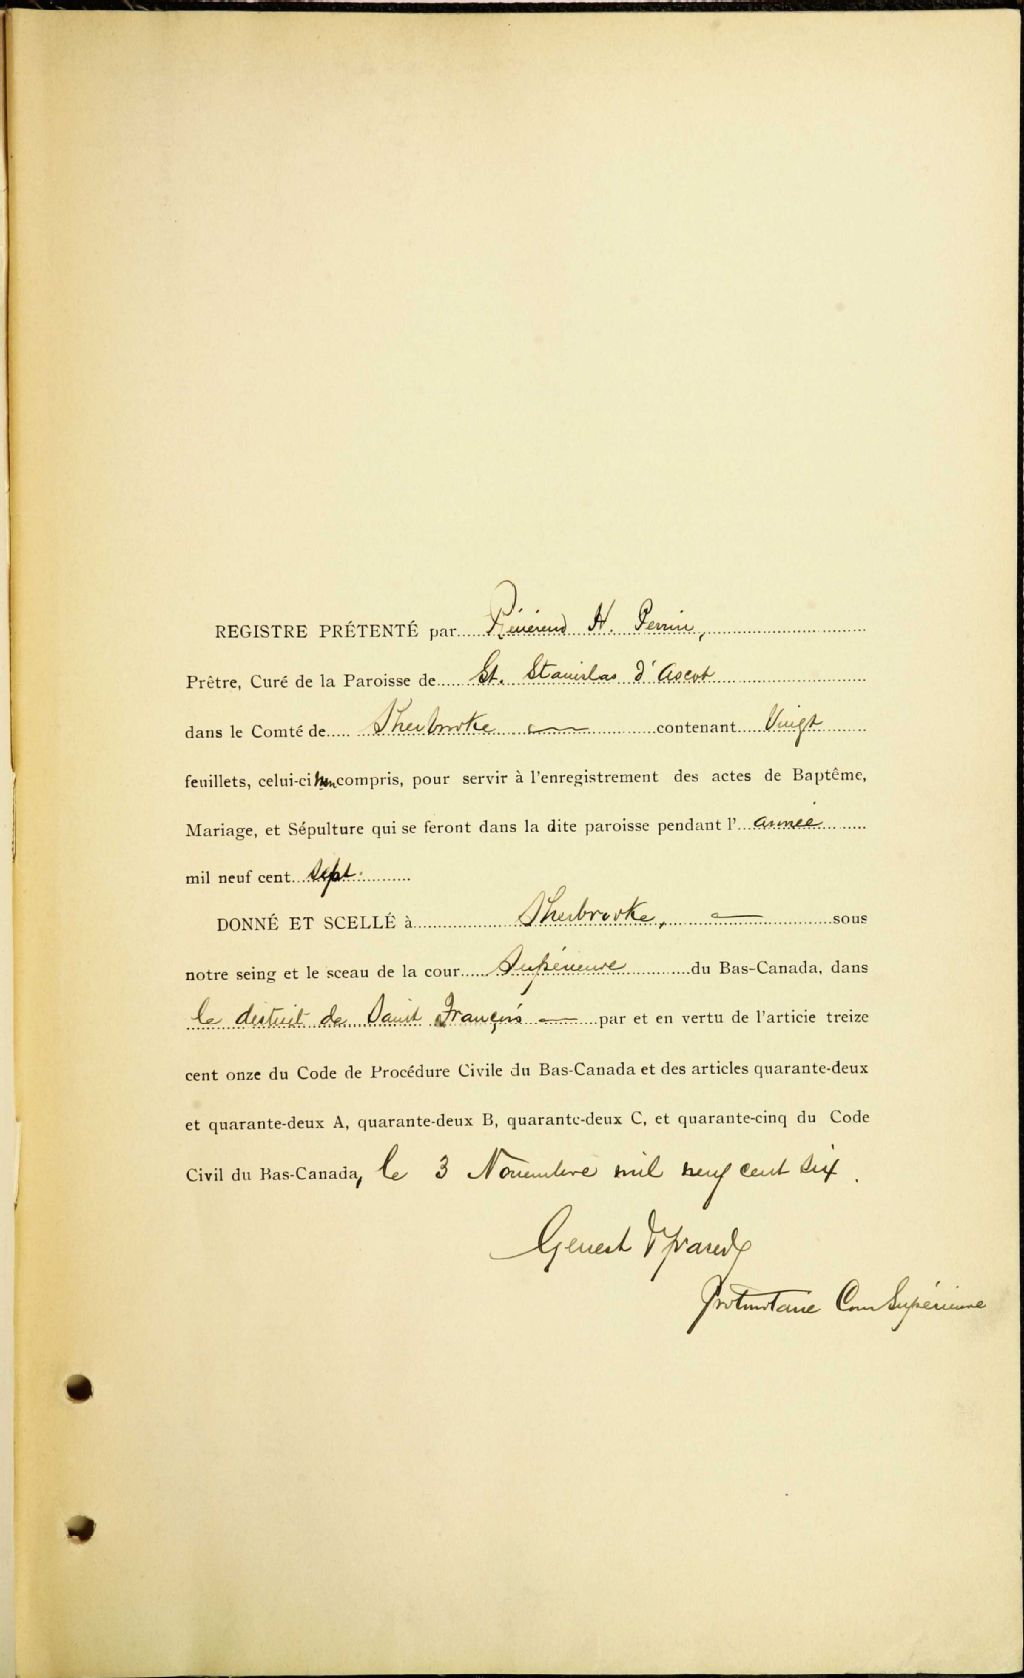 REGISTRE PRÉTENTÉ par Révérend H. Perrin,
Prêtre, Curé de la Paroisse de St. Stanislas d'Ascot
dans le Comté de Sherbrooke — contenant Vingt
feuillets, celui-ci non compris, pour servir à l'enregistrement des actes de Baptême,
Mariage, et Sépulture qui se feront dans la dite paroisse pendant l'année
mil neuf cent sept.
DONNÉ ET SCELLÉ à Sherbrooke, — sous
notre seing et le sceau de la cour Supérieure du Bas-Canada, dans
le district de Saint François — par et en vertu de l'articie treize
cent onze du Code de Procédure Civile du Bas-Canada et des articles quarante-deux
et quarante-deux A, quarante-deux B, quarante-deux C, et quarante-cinq du Code
Civil du Bas-Canada, le 3 Novembre mil neuf cent six.
Genest
Protonotaire Cour Supérieure